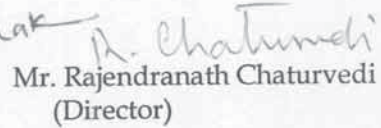 R. Chaturvedi
Mr. Rajendranath Chaturvedi
(Director)